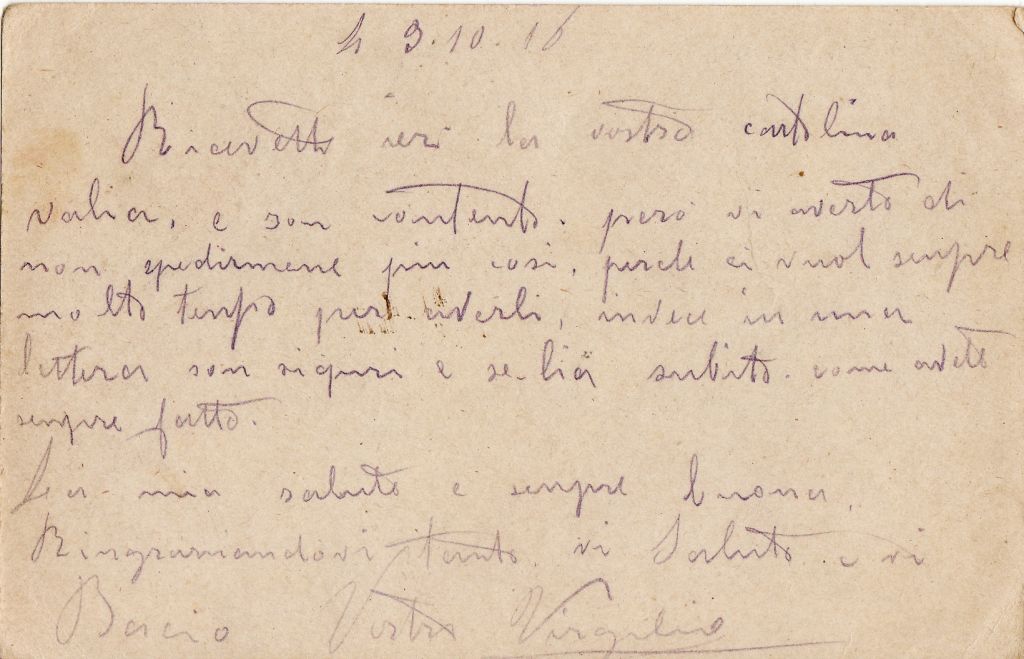 li 3.10.16
Ricevetti ieri la vostra cartolina
valia, e son contento. però vi averto di
non spedirmene più cosi, perche ci vuol senpre
molto tenpo per averli, invece in una
lettera son siguri e se-lia subito. come avete
senpre fatto.
La mia saluto e senpre buona,
Ringraniandovi tanto vi Saluto e vi
Bacio Vostro Virgilio